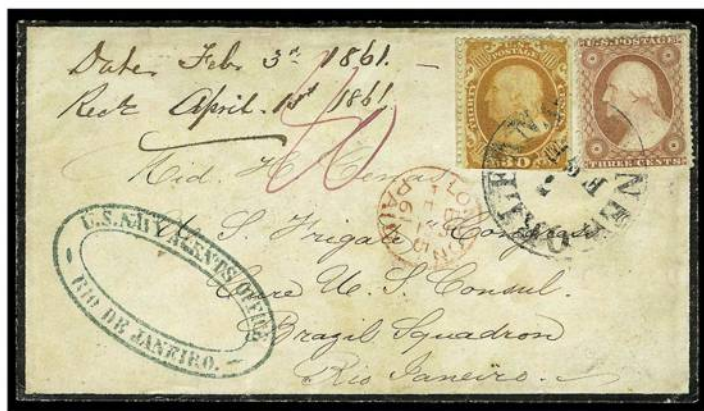 Date. Feb. 3rd 1861. —
Recd. April. 1st 1861.
40
U.S. POSTAGE
THIRTY CENTS
30
U.S. POSTAGE
THREE CENTS
Mid. H.
U. S. Frigate "Congress"
Care U. S. Consul.
Brazil Squadron
Rio Janeiro.
U.S. NAVY AGENTS OFFICE
RIO DE JANEIRO.
LONDON
PAID